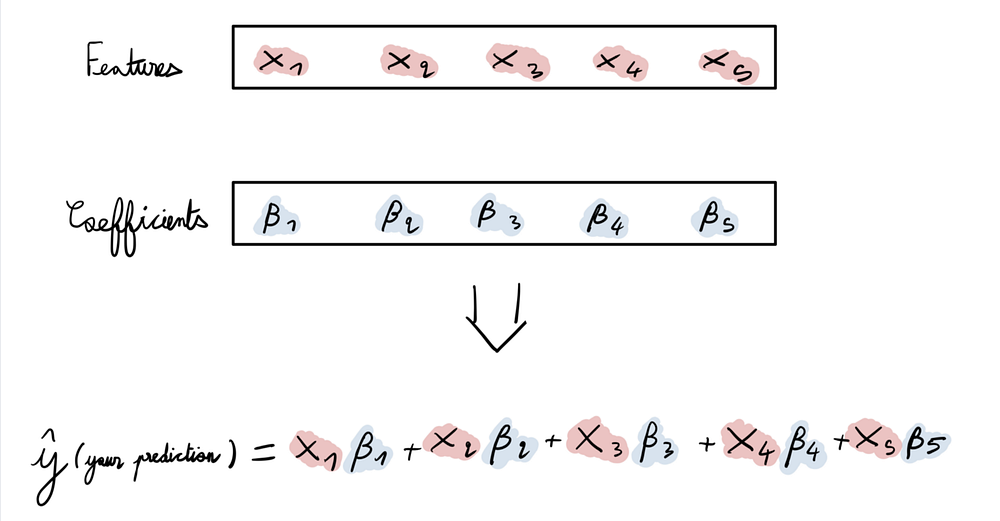 Features x₁ x₂ x₃ x₄ x₅
Coefficients β₁ β₂ β₃ β₄ β₅
ŷ (your prediction) = x₁β₁ + x₂β₂ + x₃β₃ + x₄β₄ + x₅β5